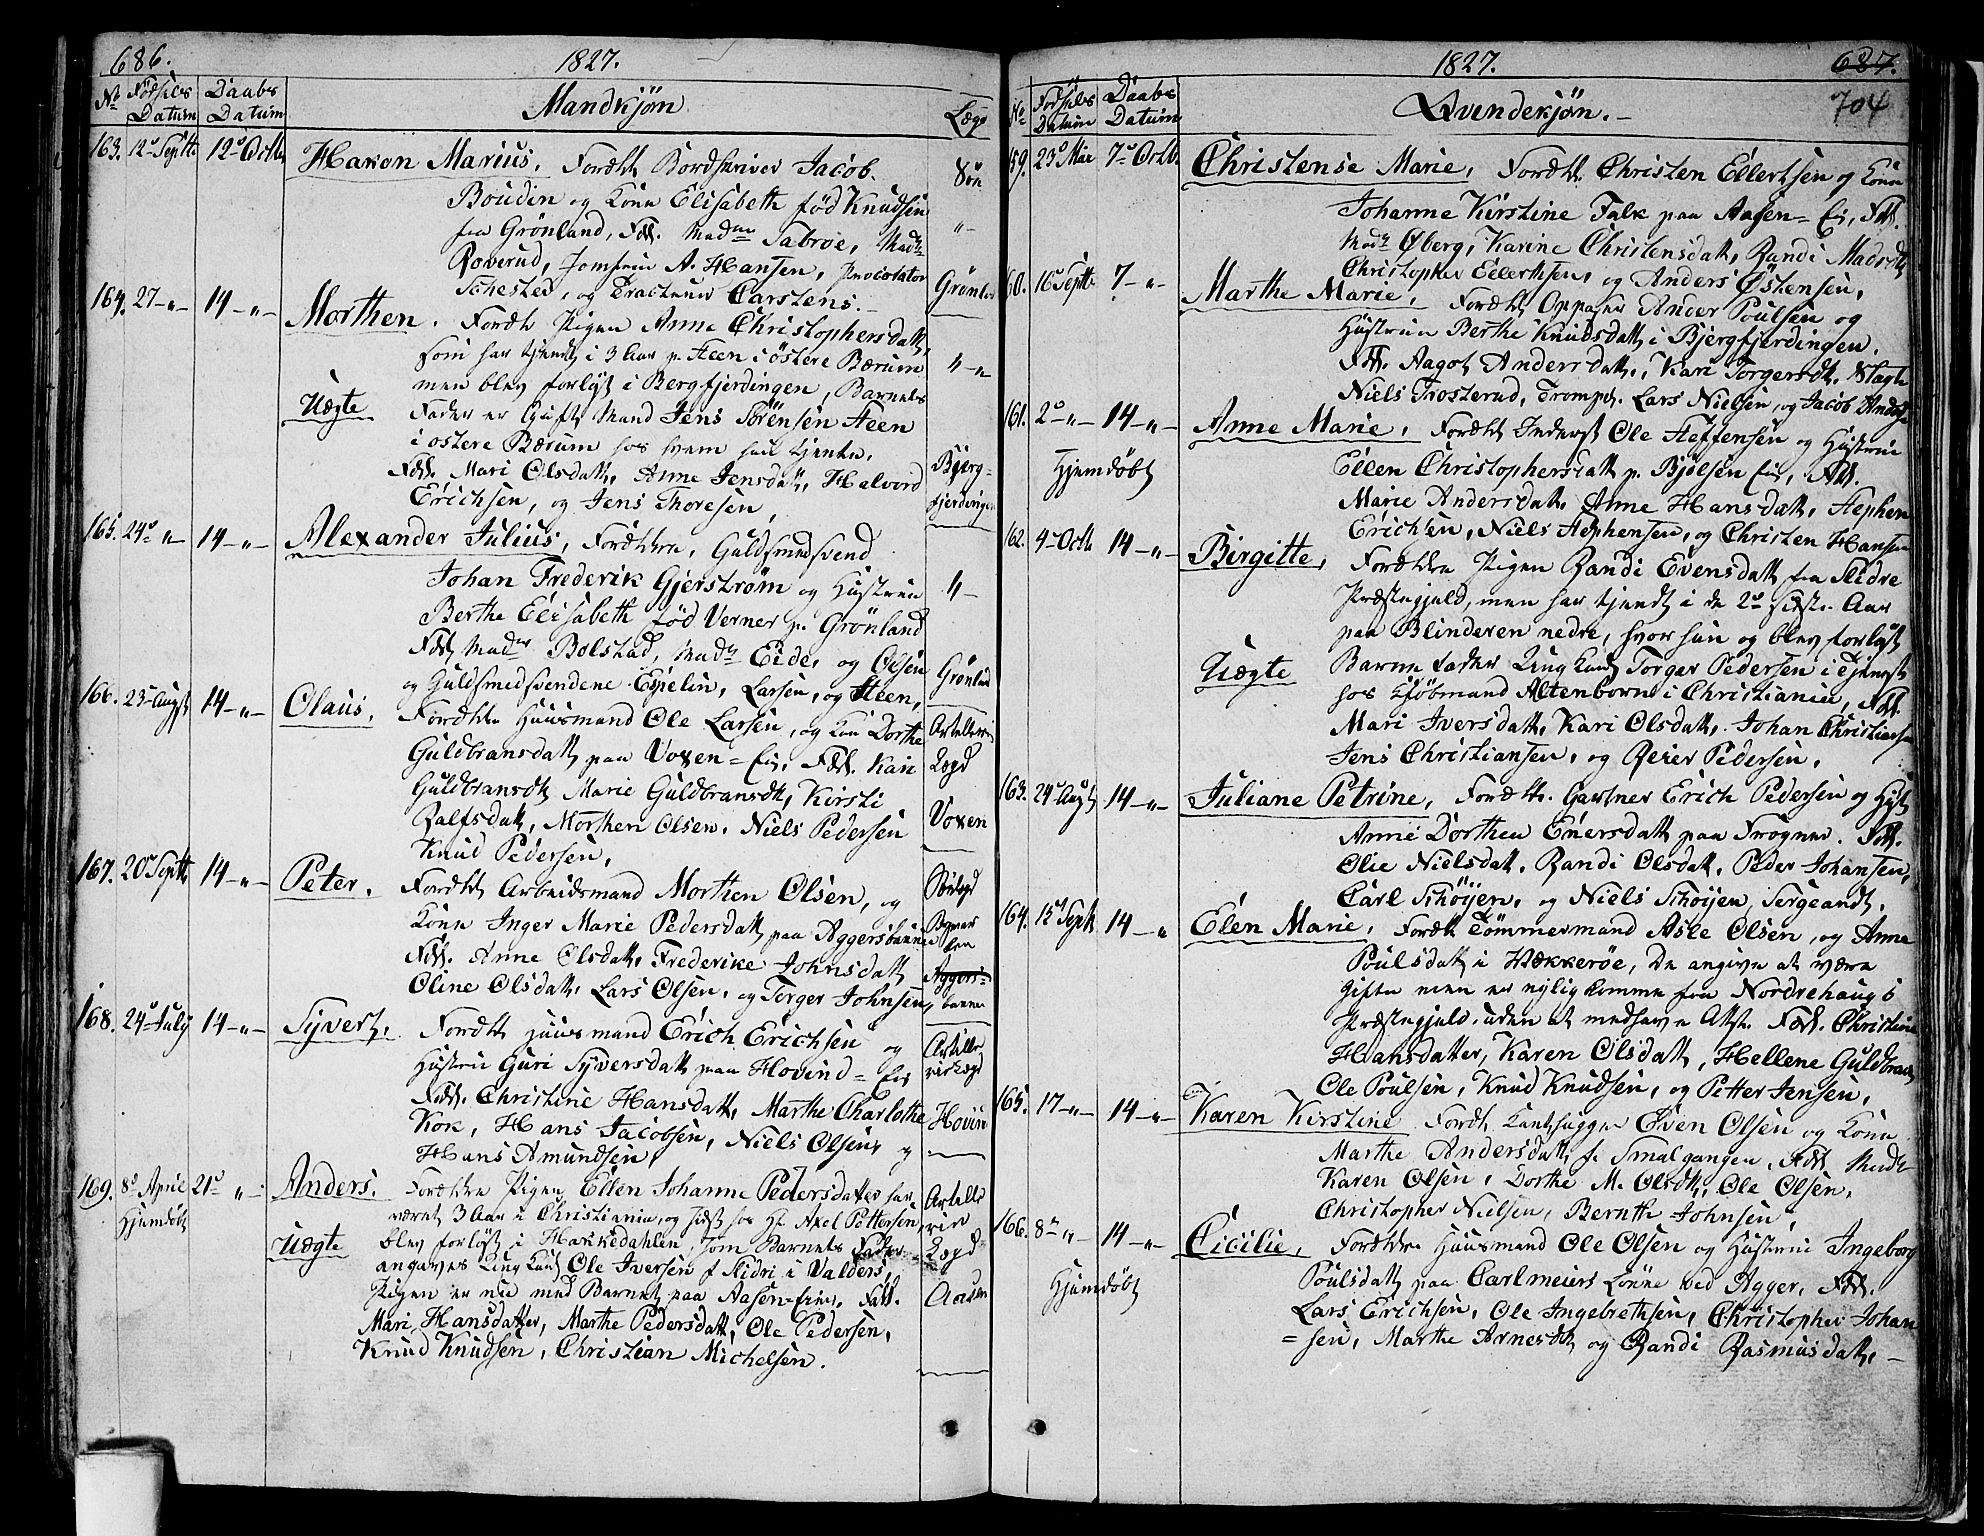 686.
1827.
No Fødsels Datum Daabs Datum Mandkjøn Lægd
163. 12te Septbr 12te Octbr Hakon Marius. Foræld. Bordskriver Jacob
Boudin og Kone Elisabeth fød Knudsen
fra Grönland, Fdd. Madme Tabroe, Mad
Roverud, Jomfrue A. Hansen, Procurator
Schested, og Tracteur Carstens. Grönland
164. 27 - " - 14 - " - Morthen. Foræld. Pigen Anne Christophersdatt,
som har tjent i 3 Aar p. Steen i östere Bærum
men blev forløst i Bergfjerdingen, Barnets
Uægte Fader er Gift Mand Jens Sörensen Steen
i ostere Bærum hos hvem hun tjente.
Fdd. Mari Olsdatt, Anne Jensdatt, Halvord Bjerg-
Erichsen, og Jens Thoresen, fjerdingen
165. 24de " 14 - " - Alexander Julius, Forældre, Guldsmedsvend
Johan Frederik Gjerström og Hustrue
Berthe Elisabeth fød Verner p. Grönland
Fdd. Madme Bolstad, Mad Eide, og Olsen
og Guldsmedsvendene Espelin, Larsen, og Steen, Grönland
166. 23 Augst 14 - " - Olaus. Forældre Huusmand Ole Larsen, og Kone Dorthe
Guldbransdatt paa Voxen=Eie, Fdd. Kari Lægd
Guldbransdt, Marie Guldbransdt, Kirsti
Ralfsdatt, Morthen Olsen, Niels Pedersen Voxen
Knud Pedersen,
167. 20de Septbr 14 - " - Peter. Foræld. Arbeidsmand Morthen Olsen, og
Kone Inger Marie Pedersdatt paa Aggersbanne
Fdd. Anne Olsdatt, Frederike Johnsdatt
Oline Olsdatt, Lars Olsen, og Torger Johnsen, banne
168. 24de July 14 - " - Syvert. Foræld. Huusmand Erich Erichsen og
Hustrue Guri Syversdatt paa Hovind=Eie
Fdd. Christine Hansdatt, Marthe Charlothe
Kok, Hans Jacobsen, Niels Olsen, og Hovin
Hans Amundsen,
169. 8de April 21de " - Anders. Forældre Pigen Ellen Johanne Pedersdatter har
Hjemdöbt været 3 Aar i Christiania, og sidst hos Hr. Axel Pettersen
Uægte blev forløst i Hakkedahlen, som Barnets Fader Lægd
angaves Ung Karl Ole Iversen f. Slidri i Valders,
Pigen er nu med Barnet paa Aasen-Eie. Fdd. Aasen
Mari Hansdatter, Marthe Pedersdatt, Ole Pedersen,
Knud Knudsen, Christian Michelsen.
1827.
687.
704
No Fødsels Datum Daabs Datum Qvindekjøn.
159. 23de Mai 7de Octbr Christense Marie, Foræld. Christen Ellertsen og Kone
Johanne Kirstine Falk paa Aasen=Eie, Fdd.
Mad Øberg, Karine Christensdatt, Randi Madsdt,
Christopher Ellertsen, og Anders Östensen,
160. 16 Septbr 7 - " - Marthe Marie, Foræld. Opvaser Ander Poulsen og
Hustrue Berthe Knudsdatt i Bjergfjerdingen.
Fdd. Aagot Andersdatt, Kari Torgersdt. Slagt
Niels Trosterud, Tromp. Lars Nielsen, og Jacob
161. 2de " - 14 - " - Anne Marie, Foræld. Inderst Ole Steffensen og Hustrue
Hjemdöbt Ellen Christophersdatt p. Bjölsen Eie, Fdd.
Marie Andersdatt, Anne Hansdatt, Stephen
Erichsen, Niels Stephensen, og Christen Hansen
162. 4 Octbr 14 - " - Birgitte, Forældre Pigen Randi Evensdatt fra Slidre
Præstegjeld, men har tjent i de 2de sidste Aar
paa Blinderen nedre, hvor hun og blev forløst
Uægte Barne Fader Ung Karl Torger Pedersen i tjenest
hos Kjöbmand Altenborn i Christiania, Fdd.
Mari Iversdatt, Kari Olsdatt. Johan Christiansen
Jens Christiansen, og Reier Pedersen,
163. 24de Augst 14 - " - Juliane Petrine, Foræld. Gartner Erich Pedersen og Hust
Anne Dorthea Enersdatt paa Frogner. Fdd.
Olie Nielsdatt, Randi Olsdatt, Peder Johansen,
Carl Schöyen, og Niels Schöyen, Sergeandt.
164. 15de Septb 14 - " Elen Marie, Foræld. Tömmermand Asle Olsen, og Anne
Poulsdatt i Hækkeröe, De angive at være
Gifte men er nylig komne fra Nordrehaugs
Præstegjeld, uden at medhave Attst. Fdd. Christine
Hansdatter, Karen Olsdatt, Hellene Guldbrands
Ole Poulsen, Knud Knudsen, og Petter Jensen,
165. 17 - " - 14 - " - Karen Kirstine Foræld. Kanthugger Sven Olsen og Kone
Marthe Andersdatt f. Smalgangen, Fdd.
Karen Olsen, Dorthe M. Olsdt, Ole Olsen,
Christopher Nielsen, Bernth Johnsen,
166. 8de " - 14 - " - Cicilie, Forældre Huusmand Ole Olsen og Hustrue Ingeborg
Hjemdöbt Poulsdatt paa Carlmeiers Lönne ved Agger, Fdd.
Lars Erichsen, Ole Ingebrethsen, Christopher Johan
=sen, Marthe Arnesdt og Randi Rasmusdatt, -